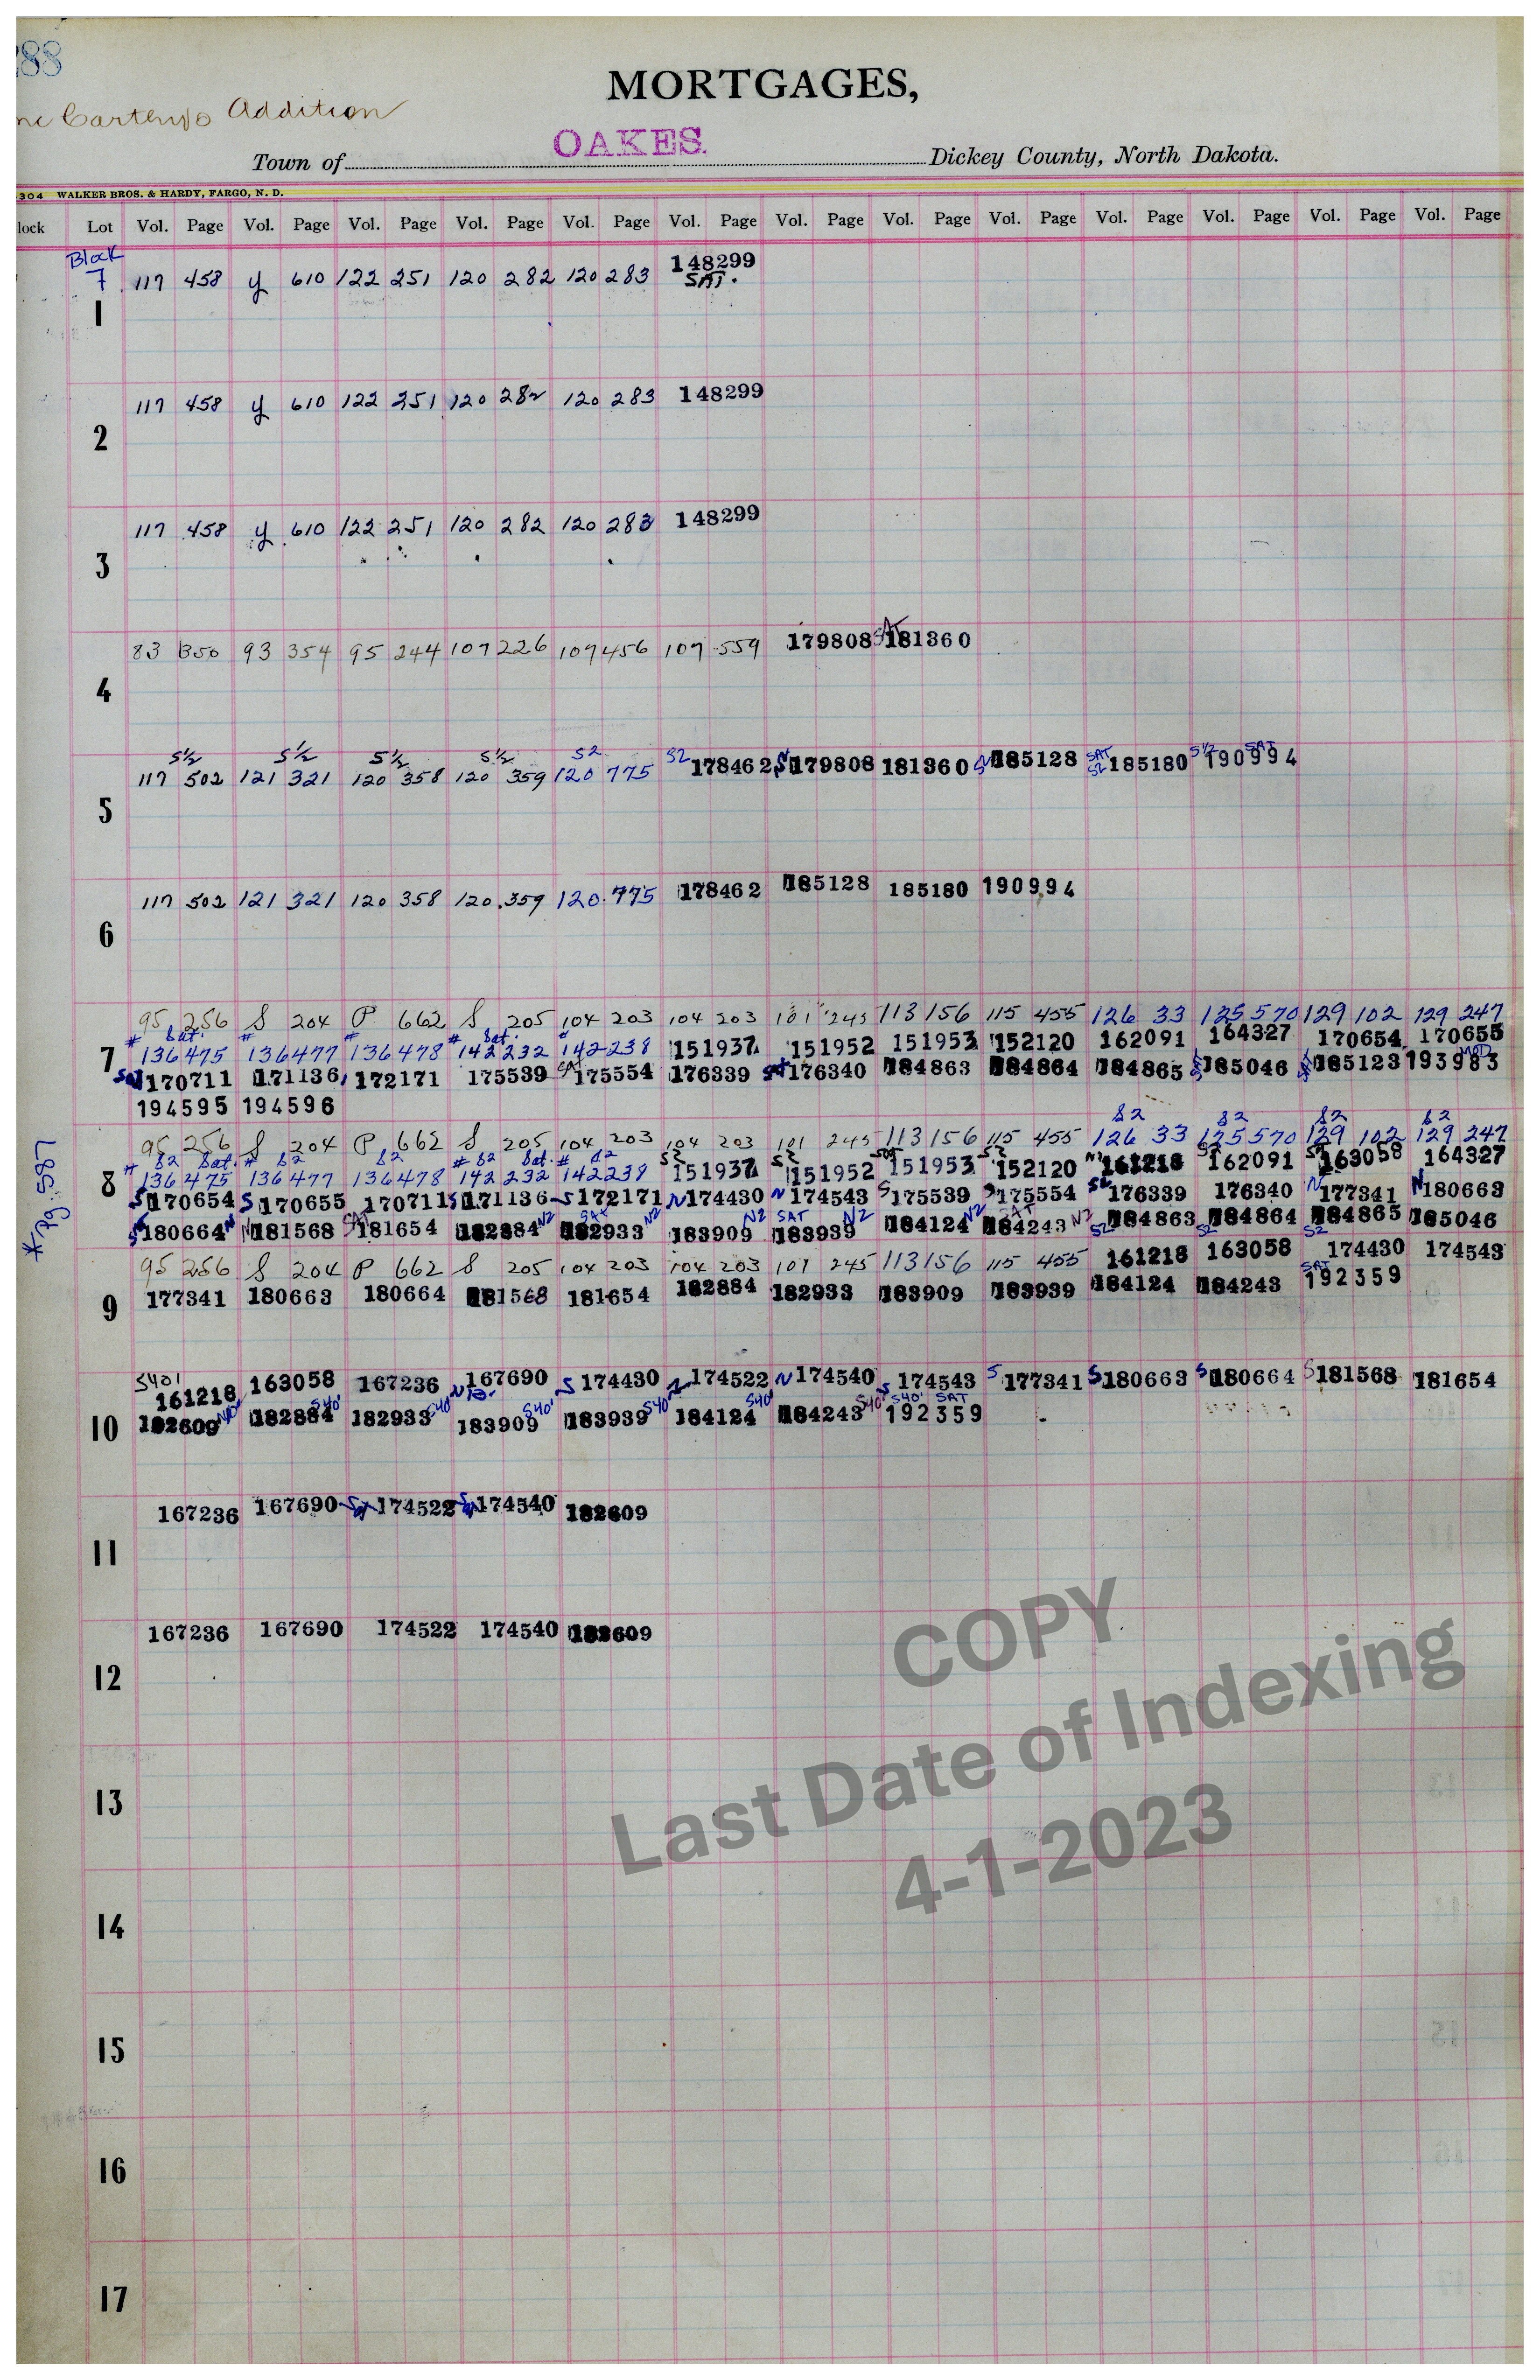 288
MORTGAGES,
Addition
Town of OAKES. Dickey County, North Dakota.
304 WALKER BROS. & HARDY, FARGO, N. D.
lock Lot Vol. Page Vol. Page Vol. Page Vol. Page Vol. Page Vol. Page Vol. Page Vol. Page Vol. Page Vol. Page Vol. Page Vol. Page Vol. Page
Block
7 117 458 y 610 122 251 120 282 120 283 148299
SAT.
1
117 458 y 610 122 251 120 282 120 283 148299
2
117 458 y 610 122 251 120 282 120 283 148299
3
83 350 93 354 95 244 107 226 109 456 107 559 179808 SAT 181360
4
S½ S½ S½ S½ S2
117 502 121 321 120 358 120 359 120 775 S2 178462 179808 181360 185128 SAT S2 185180 S½ SAT 190994
5
117 502 121 321 120 358 120 359 120 775 178462 185128 185180 190994
6
95 256 S 204 P 662 S 205 104 203 104 203 101 245 113 156 115 455 126 33 125 570 129 102 129 247
# Sat. # # # Sat. #
136 475 136 477 136 478 142 232 142 238 151937 151952 151953 152120 162091 164327 170654 170655
7 170711 171136 172171 175539 SAT 175554 176339 176340 184863 184864 184865 185046 185123 MOD 193983
194595 194596
S2 S2 S2 S2
95 256 S 204 P 662 S 205 104 203 104 203 101 245 113 156 115 455 126 33 125 570 129 102 129 247
# S2 Sat. # S2 S2 # S2 Sat. # S2
136 475 136 477 136 478 142 232 142 238 S2 151937 S2 151952 151953 S2 152120 N2 161218 S2 162091 163058 164327
8 S 170654 S 170655 170711 S 171136 S 172171 N 174430 N 174543 S 175539 S 175554 S2 176339 176340 N 177341 N 180663
180664 N 181568 SAT 181654 182884 N2 SAT 182933 N2 183909 N2 SAT 183939 N2 184124 N2 SAT 184243 N2 S2 184863 S2 184864 S2 184865 185046
* Pg. 587
95 256 S 204 P 662 S 205 104 203 104 203 101 245 113 156 115 455 161218 163058 174430 174543
9 177341 180663 180664 181568 181654 182884 182933 183909 183939 184124 184243 SAT 192359
S401
161218 163058 167236 167690 S 174430 N 174522 N 174540 S 174543 S 177341 S 180663 S 180664 S 181568 181654
10 182609 182884 S40' 182933 S40' 183909 S40' 183939 S40' 184124 S40' 184243 S40' S40' SAT 192359
167236 167690 174522 174540 182609
11
167236 167690 174522 174540 182609
12
13
14
15
16
17
COPY
Last Date of Indexing
4-1-2023